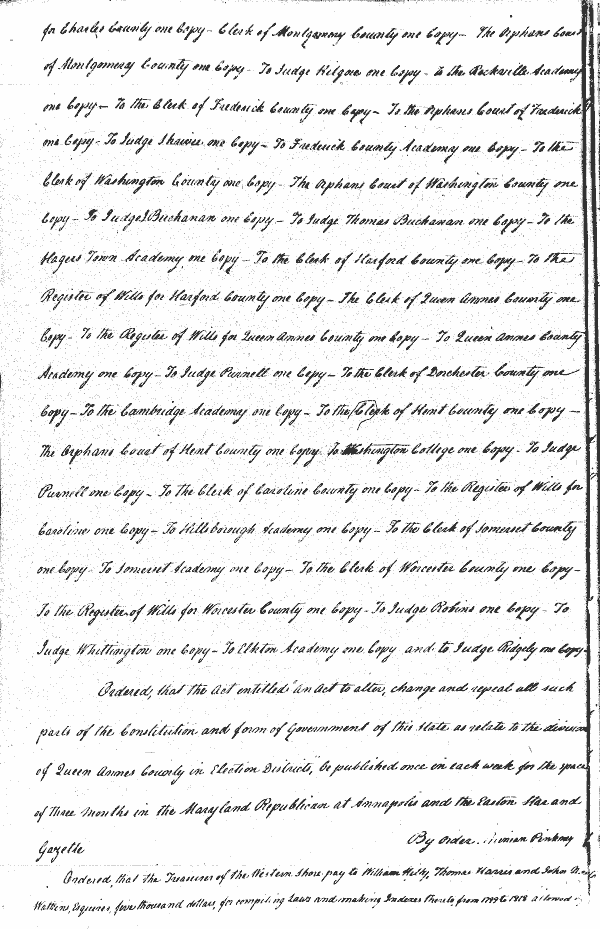 for Charles County one Copy - Clerk of Montgomery County one Copy - The Orphans Court
of Montgomery County one Copy - To Judge Kilgore one Copy - to the Rockville Academy
one Copy - to the Clerk of Frederick County one Copy - To the Orphans Court of Frederick
one Copy - To Judge Shriver one Copy - To Frederick County Academy one Copy - To the
Clerk of Washington County one Copy - The Orphans Court of Washington County one
Copy - To Judge J Buchanan one Copy - To Judge Thomas Buchanan one Copy - To the
Hagers Town Academy one Copy - To the Clerk of Harford County one Copy - To the
Register of Wills for Harford County one Copy - The Clerk of Queen Annes County one
Copy - To the Register of Wills for Queen Annes County one Copy - To Queen Annes County
Academy one Copy - To Judge Purnell one Copy - To the Clerk of Dorchester County one
Copy - To the Cambridge Academy one Copy - To the Clerk of Kent County one Copy -
the Orphans Court of Kent County one Copy To Washington College one Copy - To Judge
Purnell one Copy - To the Clerk of Caroline County one Copy - To the Register of Wills for
Caroline one Copy - To Hillsborough Academy one Copy - To the Clerk of Somerset County
one Copy - To Somerset Academy one Copy - To the Clerk of Worcester County one Copy -
To the Register of Wills for Worcester County one Copy - To Judge Robins one Copy - To
Judge Whittington one Copy - To Elkton Academy one Copy and to Judge Ridgely one Copy -
Ordered, that the Act entitled "an Act to alter, change and repeal all such
parts of the Constitution and form of Government of this State as relate to the division
of Queen Annes County in Election Districts, be published once in each week for the space
of three months in the Maryland Republican at Annapolis and the Easton Star and
Gazette By Order. Ninian Pinkney
Ordered, that the Treasurer of the Western Shore pay to William Kilty, Thomas Harris and John N.
Watkins, Esquires, five thousand dollars, for compiling Laws and making Indexes thereto, from 1799 to 1818 allowed